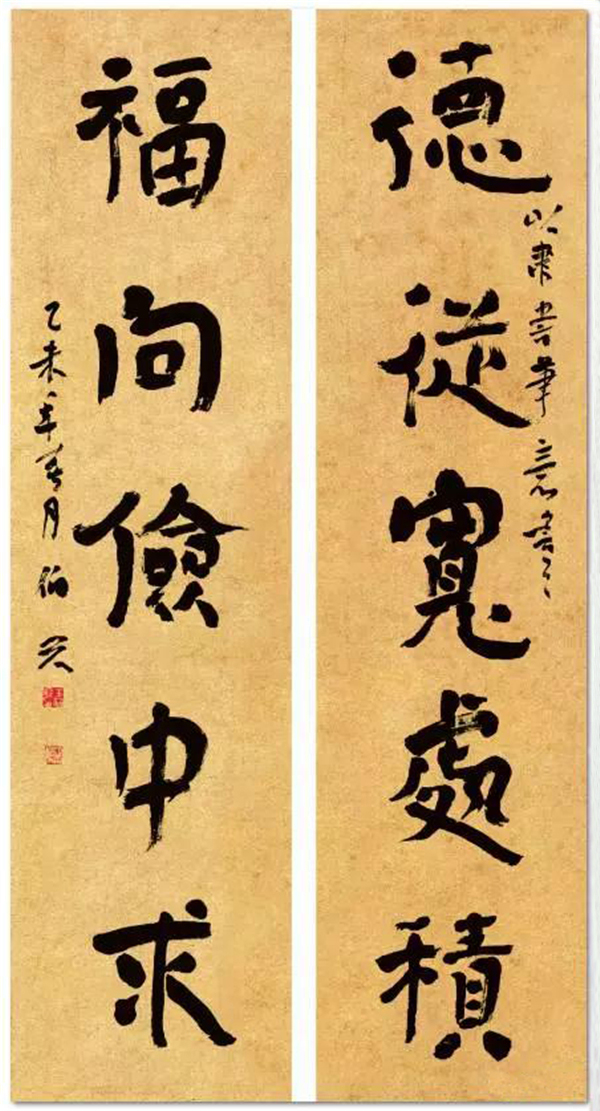 德從寬處積
以隶書筆意書之
福向儉中求
乙未年春月伯安